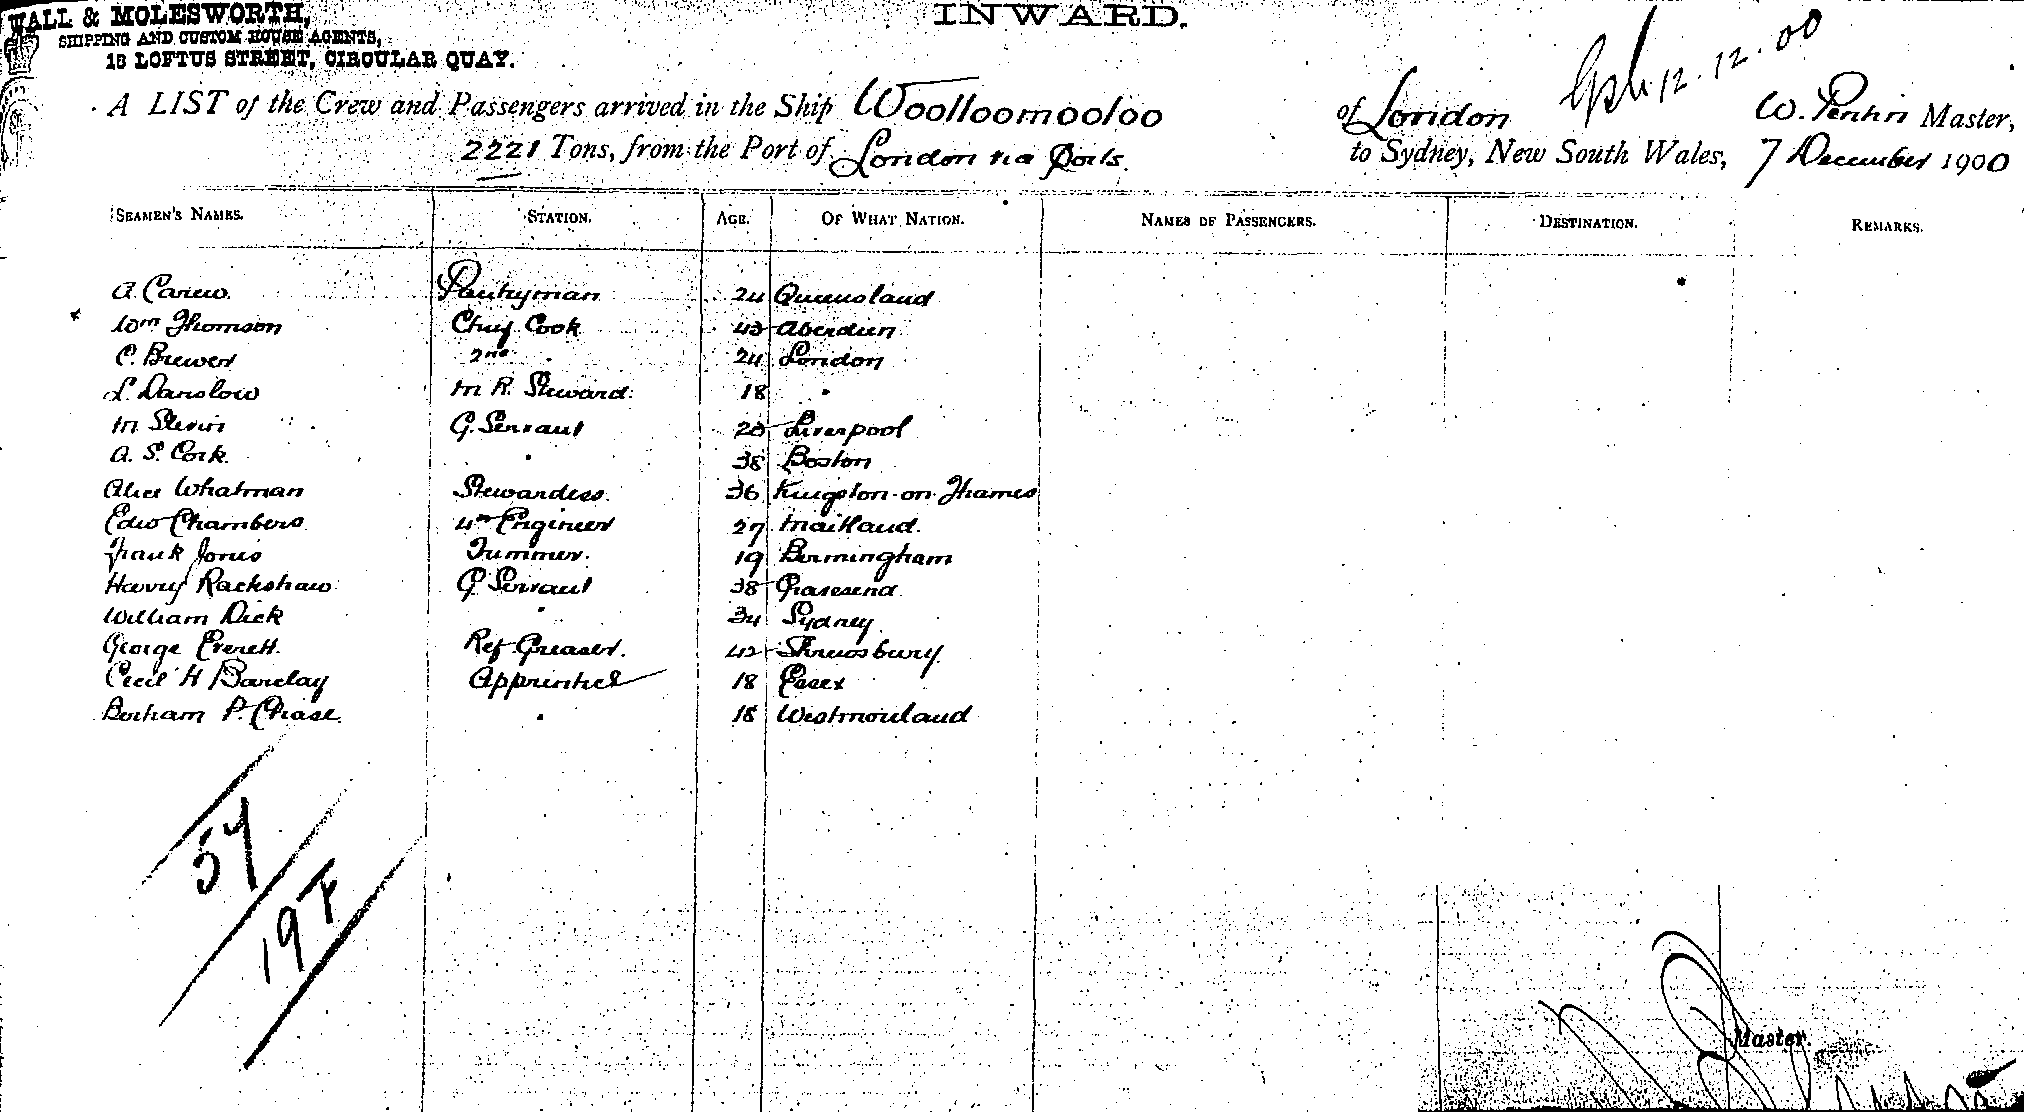 WALL & MOLESWORTH,
SHIPPING AND CUSTOM HOUSE AGENTS,
18 LOFTUS STREET, CIRCULAR QUAY.
INWARD.
12.12.00
A LIST of the Crew and Passengers arrived in the Ship Woolloomooloo of London W. Master,
2221 Tons, from the Port of London via Ports. to Sydney, New South Wales, 7 December 1900
SEAMEN'S NAMES. STATION. AGE. OF WHAT NATION. NAMES OF PASSENGERS. DESTINATION. REMARKS.
A. Carew. Pantryman 24 Queensland
Wm Thomson Chief Cook 43 Aberdeen
C. Brewer 2nd " 24 London
L. Danslow M. R. Steward. 18 "
M Stevin G. Servant 20 Liverpool
A. S. Cork. " 38 Boston
Alice Whatman Stewardess. 36 Kingston-on-Thames
Edw Chambers 4th Engineer 27 Maitland.
Frank Jones Trimmer. 19 Birmingham
Harry Rackshaw G Servant 38 Gravesend
William Dick " 34 Sydney
George Everett. Ref Greaser. 42 Shrewsbury
Cecil H Barclay Apprentice 18 Essex
P. Chase. " 18 Westmorland
57
197
Master.